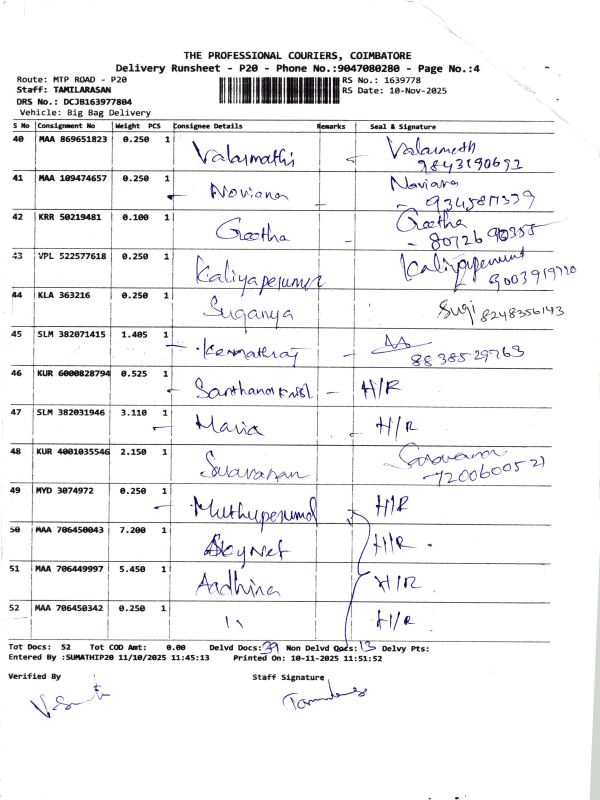 THE PROFESSIONAL COURIERS, COIMBATORE
Delivery Runsheet - P20 - Phone No.:9047080280 - Page No.:4
Route: MTP ROAD - P20 RS No.: 1639778
Staff: TAMILARASAN RS Date: 10-Nov-2025
DRS No.: DCJB163977804
Vehicle: Big Bag Delivery
S No Consignment No Weight PCS Consignee Details Remarks Seal & Signature
40 MAA 869651823 0.250 1 Valarmathi Valarmath
41 MAA 109474657 0.250 1 Noviana Noviana
42 KRR 50219481 0.100 1 Geetha Geetha
43 VPL 522577618 0.250 1 Kaliyaperumal Kaliyaperumal
44 KLA 363216 0.250 1 Suganya Sugi 8248356143
45 SLM 382071415 1.405 1
8838529763
46 KUR 6000828794 0.525 1 H/R
47 SLM 382031946 3.110 1 Maria H/R
48 KUR 4001035546 2.150 1 Saravanan Saravanan
7200600521
49 MYD 3074972 0.250 1 Muthuperumal H/R
50 MAA 706450043 7.200 1 Skynet H/R
51 MAA 706449997 5.450 1 Aadhira H/R
52 MAA 706450342 0.250 1 11 H/R
Tot Docs: 52 Tot COD Amt: 0.00 Delvd Docs: 39 Non Delvd Docs: 13 Delvy Pts:
Entered By :SUMATHIP20 11/10/2025 11:45:13 Printed On: 10-11-2025 11:51:52
Verified By Staff Signature